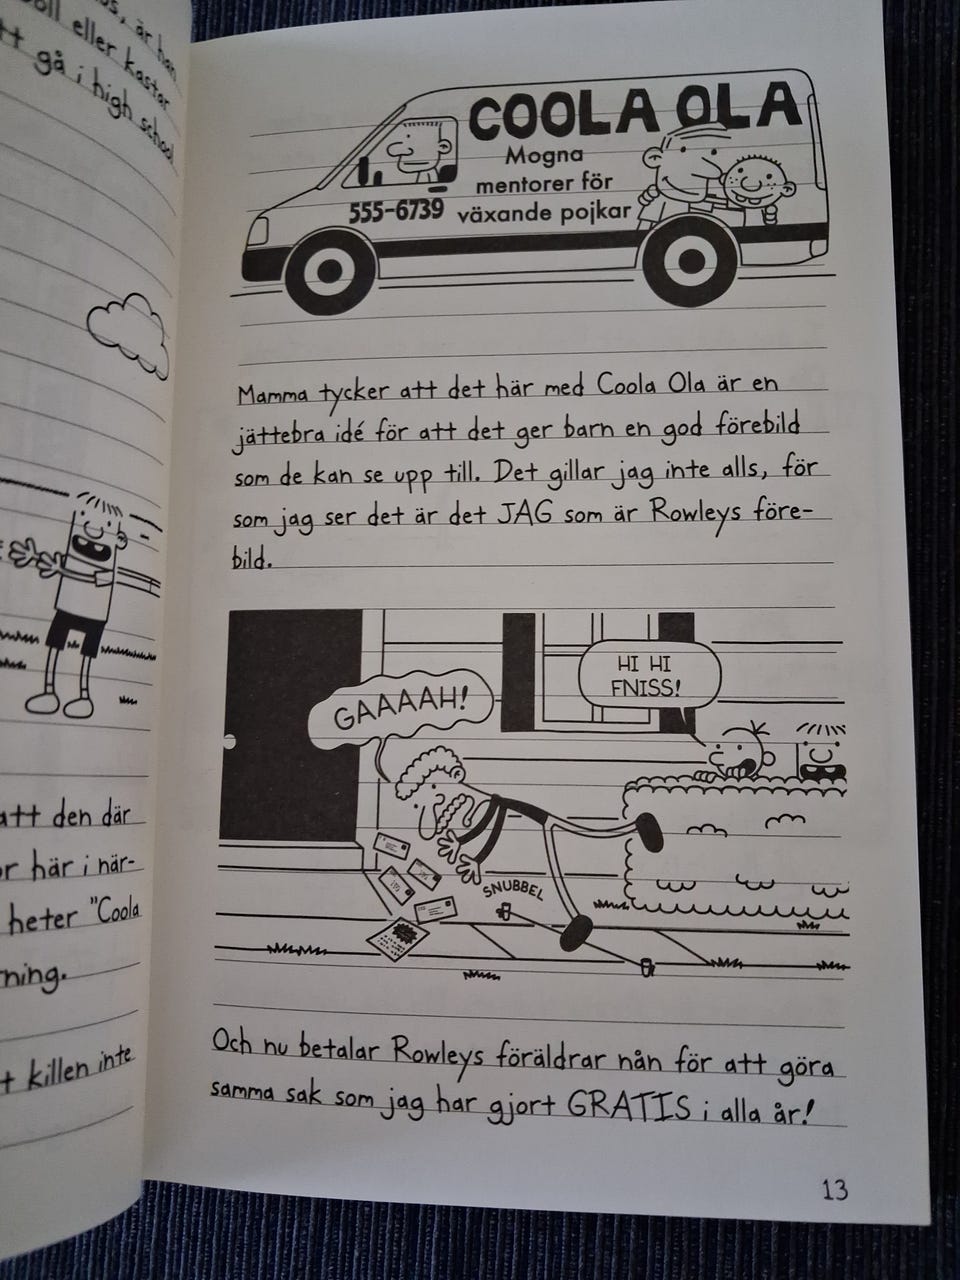 är han
eller kastar
gå i high school
att den där
här i när-
heter "Coola
killen inte
COOLA OLA
Mogna
mentorer för
växande pojkar
555-6739
Mamma tycker att det här med Coola Ola är en
jättebra idé för att det ger barn en god förebild
som de kan se upp till. Det gillar jag inte alls, för
som jag ser det är det JAG som är Rowleys före-
bild.
GAAAAH!
HI HI
FNISS!
SNUBBEL
Och nu betalar Rowleys föräldrar nån för att göra
samma sak som jag har gjort GRATIS i alla år!
13